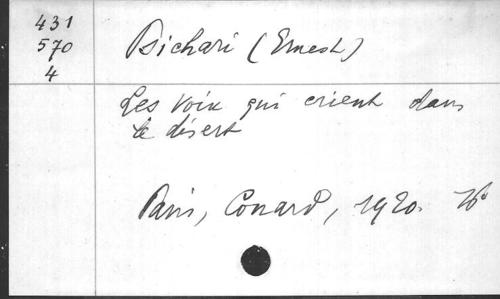 431
570
4
Psichari (Ernest)
Les Voix qui crient dans
le désert
Paris, Conard, 1920.